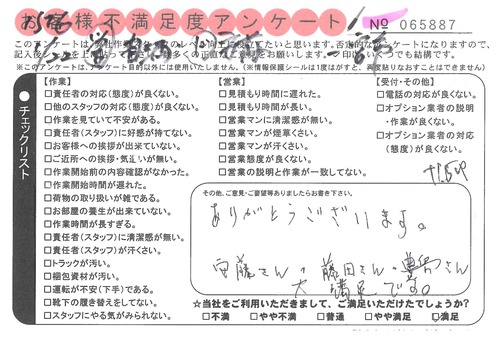 お客様不満足度アンケート
№ 065887
※このアンケートは、アンケート目的以外には使用いたしません。(※情報保護シールは1度はがすと、再度貼りなおすことはできません)
チェックリスト
【作業】
□責任者の対応(態度)が良くない。
□他のスタッフの対応(態度)が良くない。
□作業を見ていて不安がある。
□責任者(スタッフ)に好感が持てない。
□お客様への挨拶が出来ていない。
□ご近所への挨拶・気遣いが無い。
□作業開始前の内容確認がなかった。
□作業開始時間が遅れた。
□荷物の取り扱いが雑である。
□お部屋の養生が出来ていない。
□作業時間が長すぎる。
□責任者(スタッフ)に清潔感が無い。
□責任者(スタッフ)が汗くさい。
□トラックが汚い。
□梱包資材が汚い。
□運転が不安(下手)である。
□靴下の履き替えをしてない。
□スタッフにやる気がみられない。
【営業】
□見積時間に遅れた。
□見積もり時間が長い。
□営業マンに清潔感が無い。
□営業マンが煙草くさい。
□営業マンが汗くさい。
□営業態度が良くない。
□営業の説明と作業が一致してない。
【受付・その他】
□電話の対応が良くない。
□オプション業者の説明
・作業が良くない。
□オプション業者の対応
(態度)が良くない。
その他、ご意見・ご要望等ありましたらお書き下さい。
ありがとうございます。
安藤さん・藤田さん・さん
大満足です。
☆当社をご利用いただきまして、ご満足いただけたでしょうか?
□不満 □やや不満 □普通 □やや満足 □満足